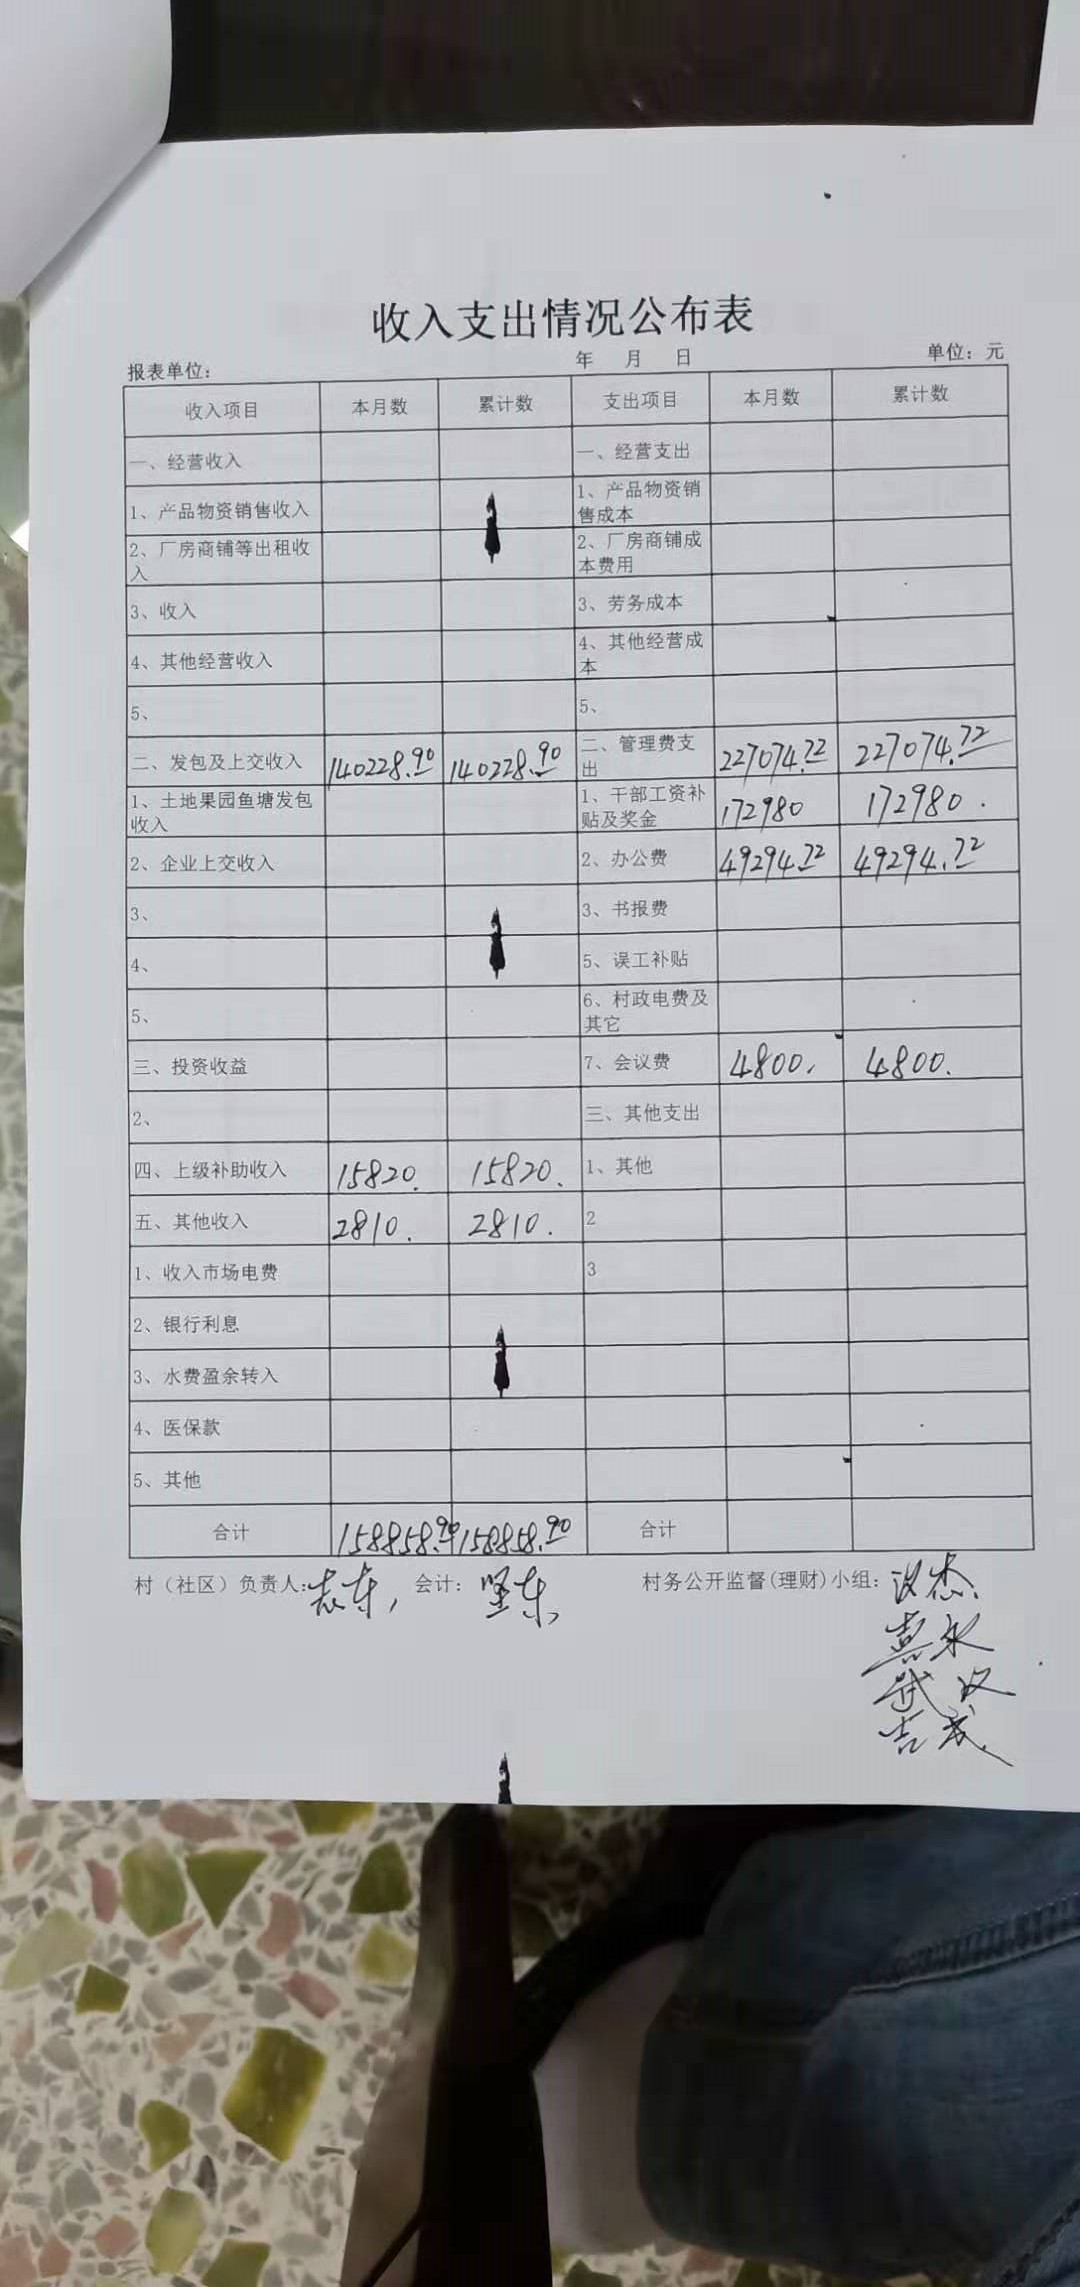 收入支出情况公布表
报表单位： 年 月 日 单位：元
收入项目 本月数 累计数 支出项目 本月数 累计数
一、经营收入 一、经营支出
1、产品物资销售收入 1、产品物资销售成本
2、厂房商铺等出租收入 2、厂房商铺成本费用
3、收入 3、劳务成本
4、其他经营收入 4、其他经营成本
5、 5、
二、发包及上交收入 140228.90 140228.90 二、管理费支出 227074.72 227074.72
1、土地果园鱼塘发包收入 1、干部工资补贴及奖金 172980 172980.
2、企业上交收入 2、办公费 49294.72 49294.72
3、 3、书报费
4、 5、误工补贴
5、 6、村政电费及其它
三、投资收益 7、会议费 4800. 4800.
2、 三、其他支出
四、上级补助收入 15820. 15820. 1、其他
五、其他收入 2810. 2810. 2
1、收入市场电费 3
2、银行利息
3、水费盈余转入
4、医保款
5、其他
合计 158858.90 158858.90 合计
村（社区）负责人: 志东, 会计: 坚东 村务公开监督(理财)小组: 汉杰